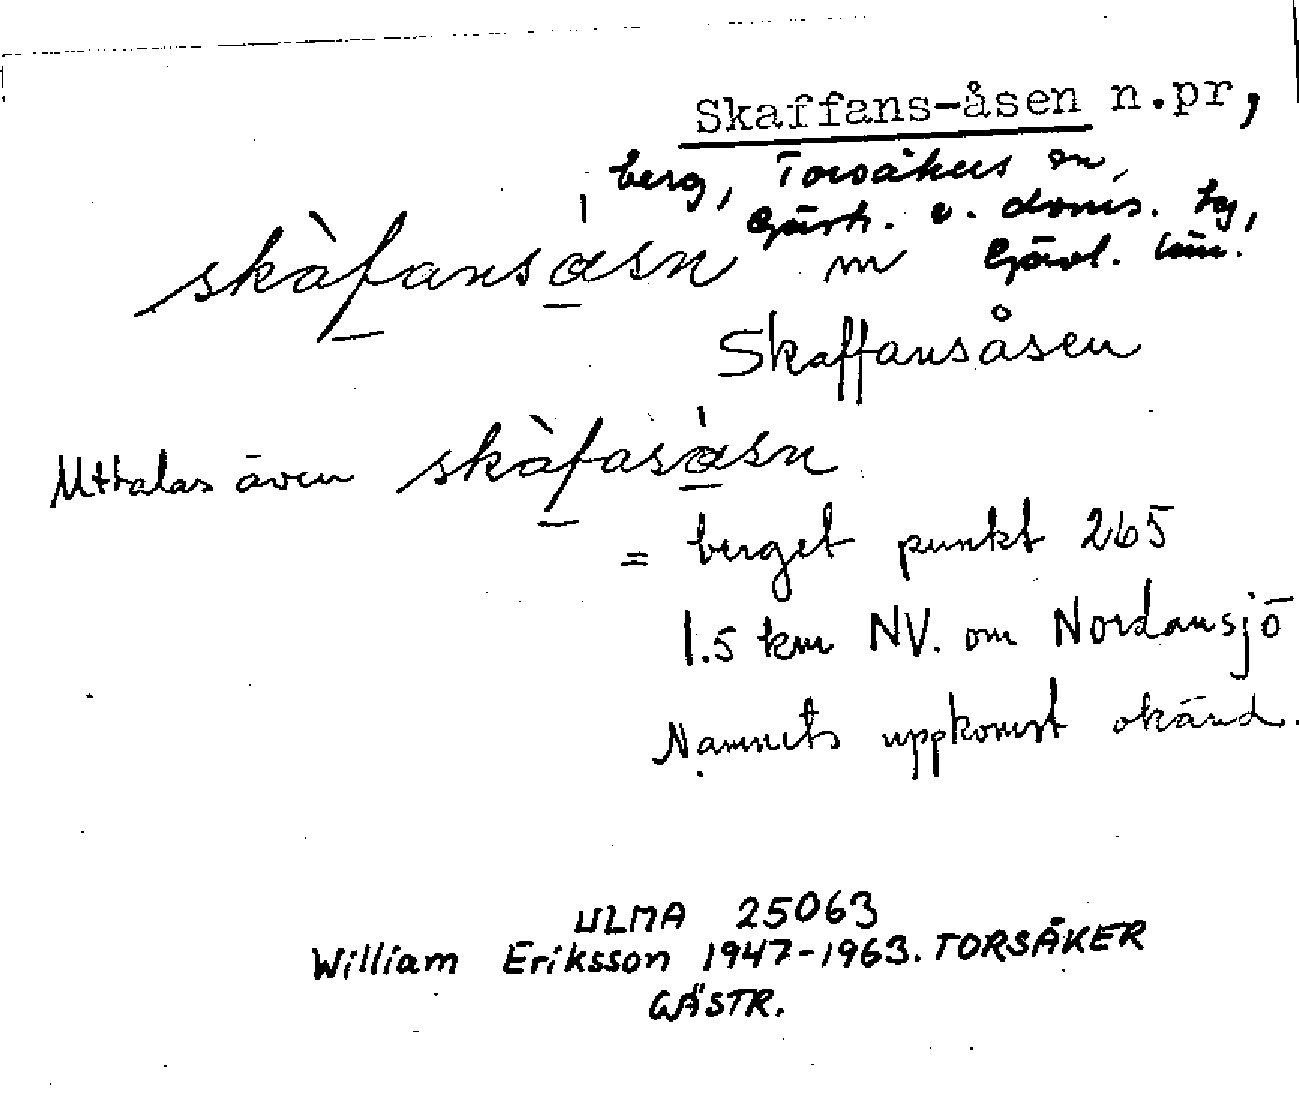 Skaffans-åsen n.pr,
berg, Torsåkers sn,
Gästr. v. doms. hg,
skàfansåsn m Gävl. län.
Skaffansåsen
Uttalas även skàfasåsn
= berget punkt 265
1.5 km NV. om Nordansjö
Namnets uppkomst okänd.
ULMA 25063
William Eriksson 1947-1963. TORSÅKER
GÄSTR.